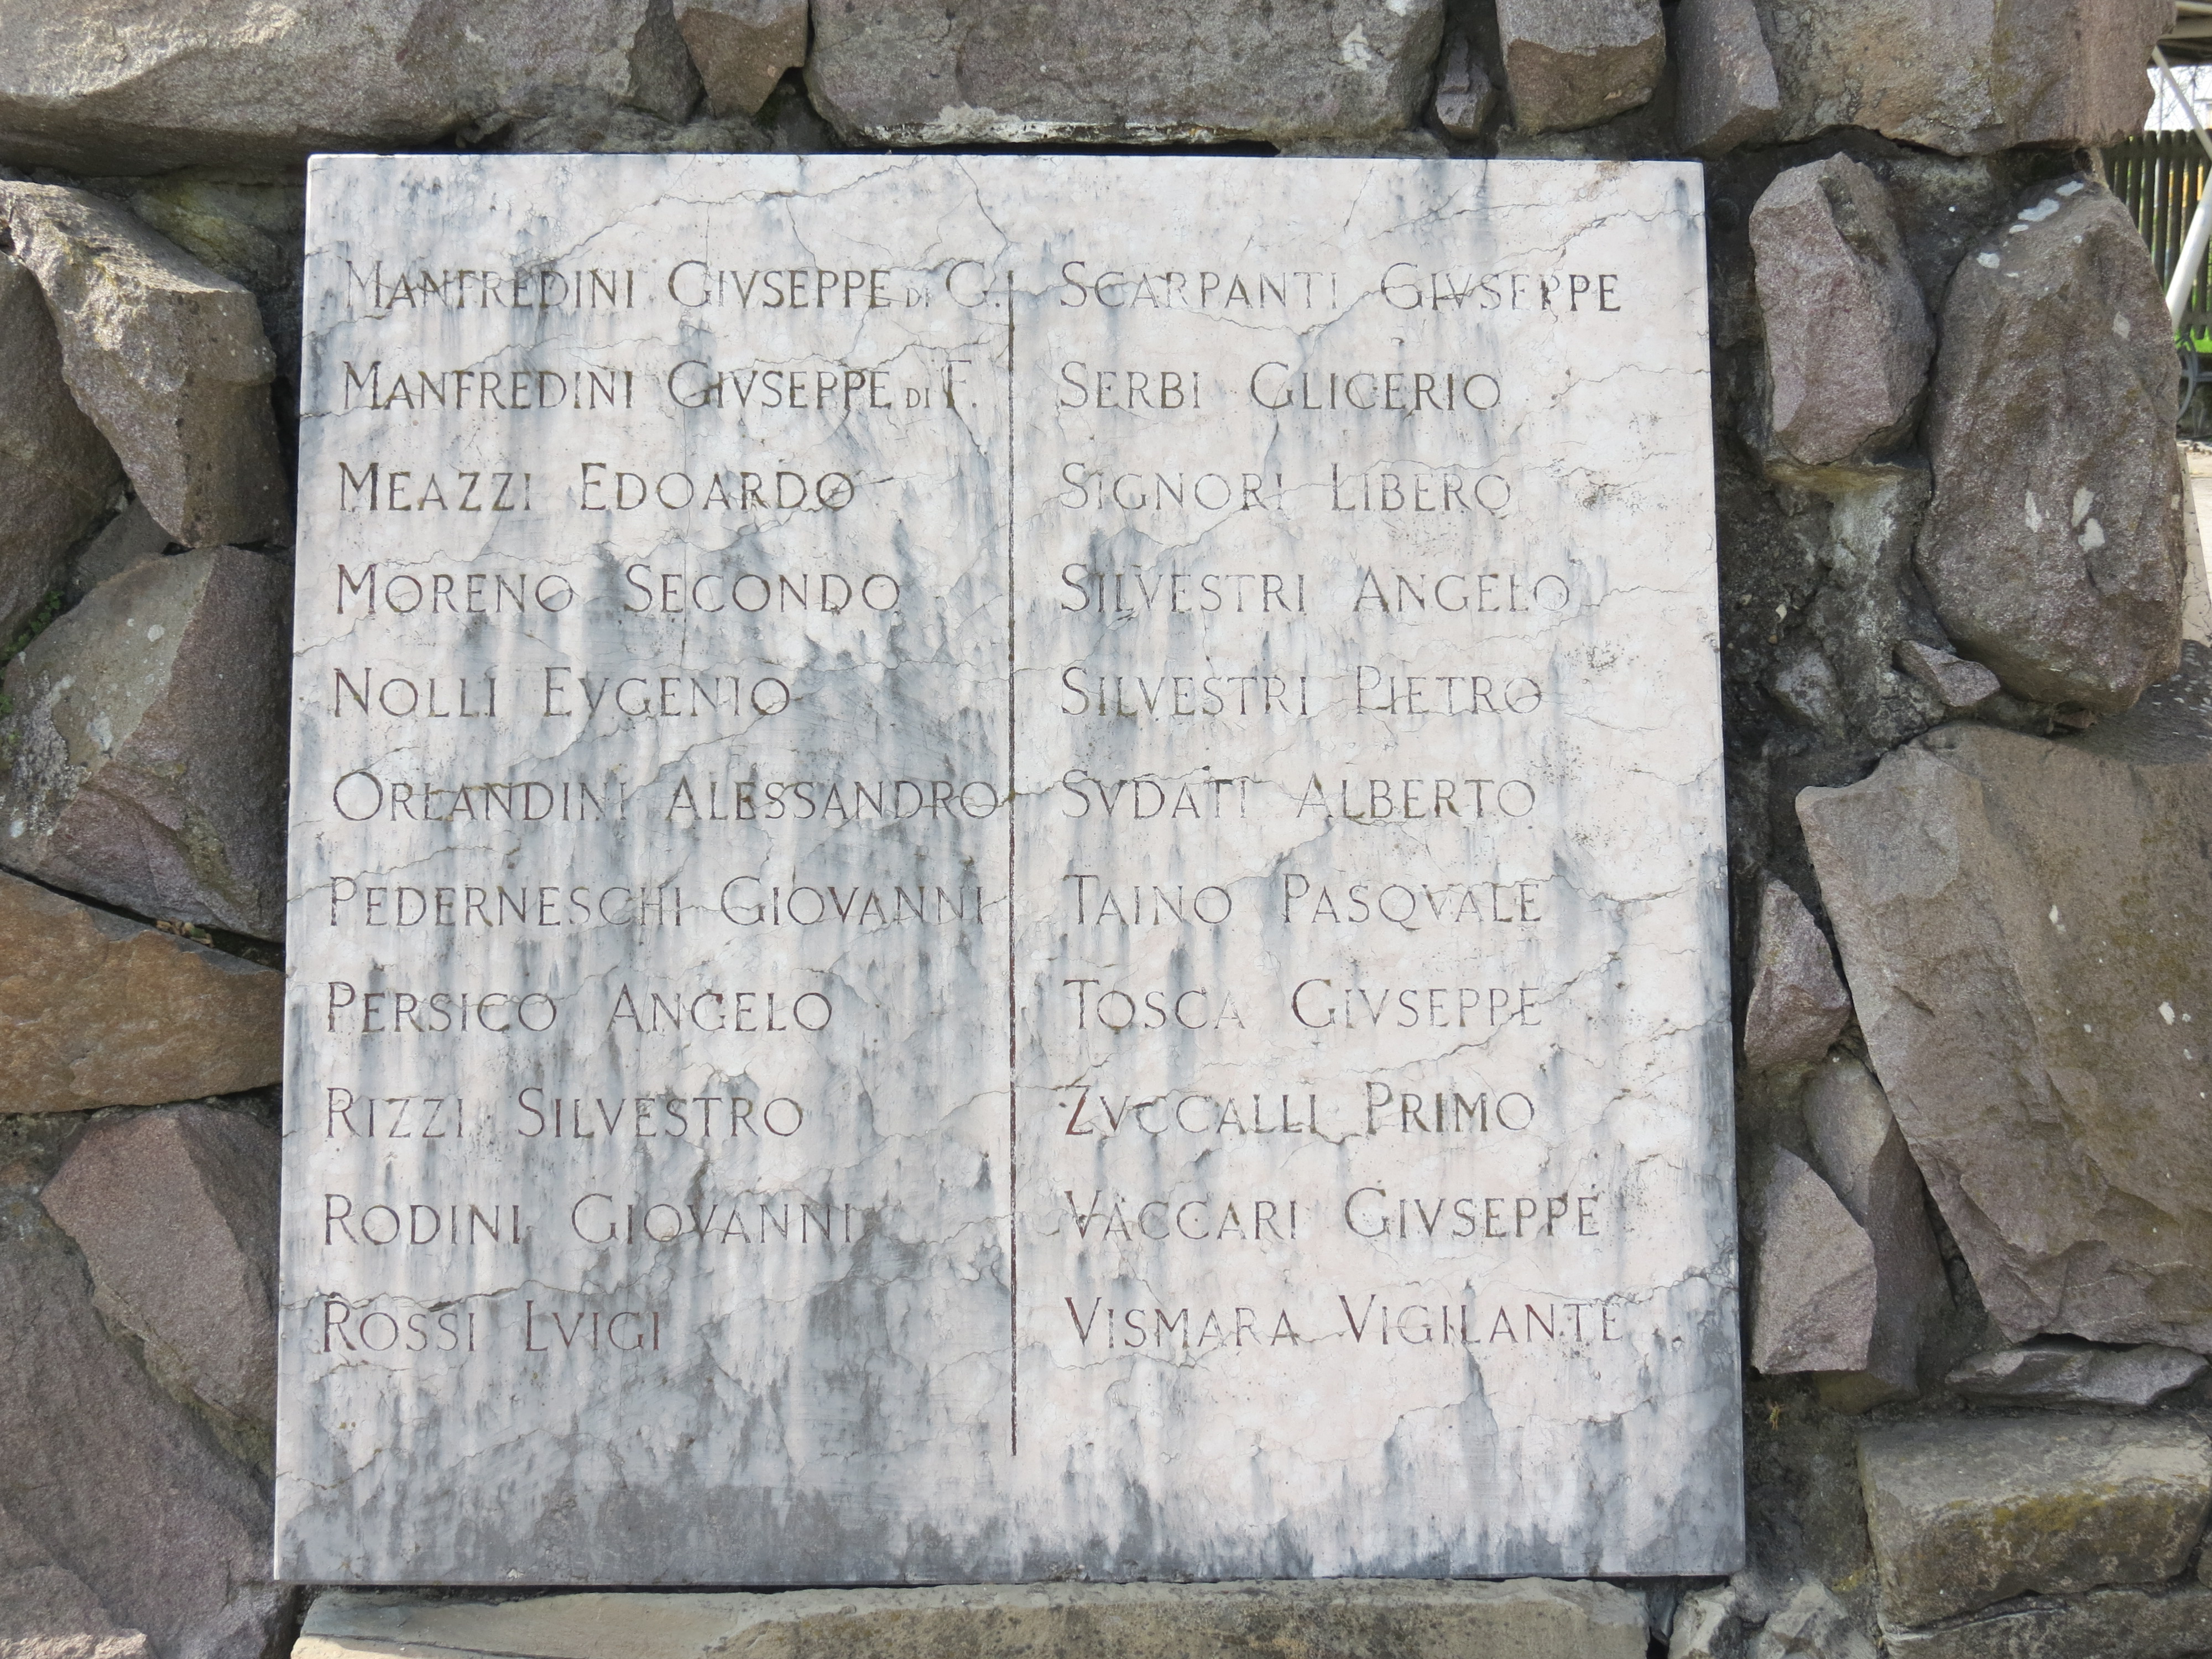 MANFREDINI GIVSEPPE DI G.
MANFREDINI GIVSEPPE DI F.
MEAZZI EDOARDO
MORENO SECONDO
NOLLI EVGENIO
ORLANDINI ALESSANDRO
PEDERNESCHI GIOVANNI
PERSICO ANGELO
RIZZI SILVESTRO
RODINI GIOVANNI
ROSSI LVIGI
SCARPANTI GIVSEPPE
SERBI GLICERIO
SIGNORI LIBERO
SILVESTRI ANGELO
SILVESTRI PIETRO
SVDATI ALBERTO
TAINO PASQVALE
TOSCA GIVSEPPE
ZVCCALLI PRIMO
VACCARI GIVSEPPE
VISMARA VIGILANTE